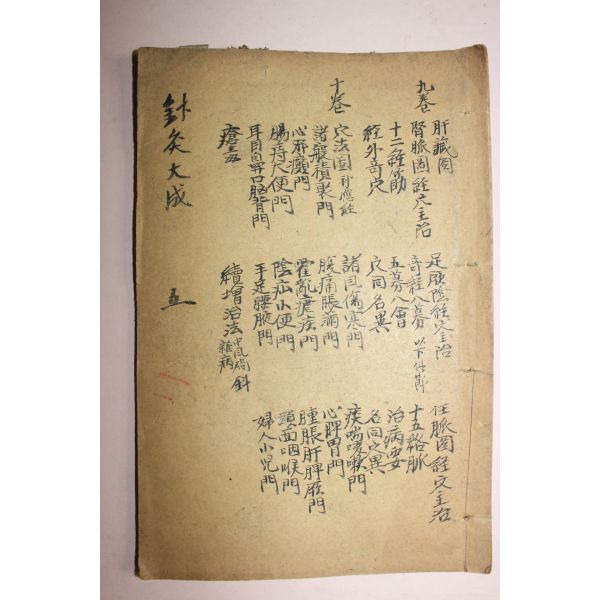 九卷
肝藏圖
足厥陰經穴主治
任脈圖經穴主治
腎脈圖經穴主治
奇經八募
十五絡脈
十二經筋
五募八會
治病要
經外奇穴
穴同名異
名同穴異
十卷
穴法圖
諸風傷寒門
痰喘咳嗽門
諸般積聚門
腹痛脹滿門
心脾胃門
心邪癲門
霍亂瘧疾門
腫脹肝脾厥門
腸痔大便門
陰疝小便門
頭面咽喉門
耳目鼻口
手足腰腋門
婦人小兒門
瘡毒
續增治法 中風 雜病
針灸大成
五